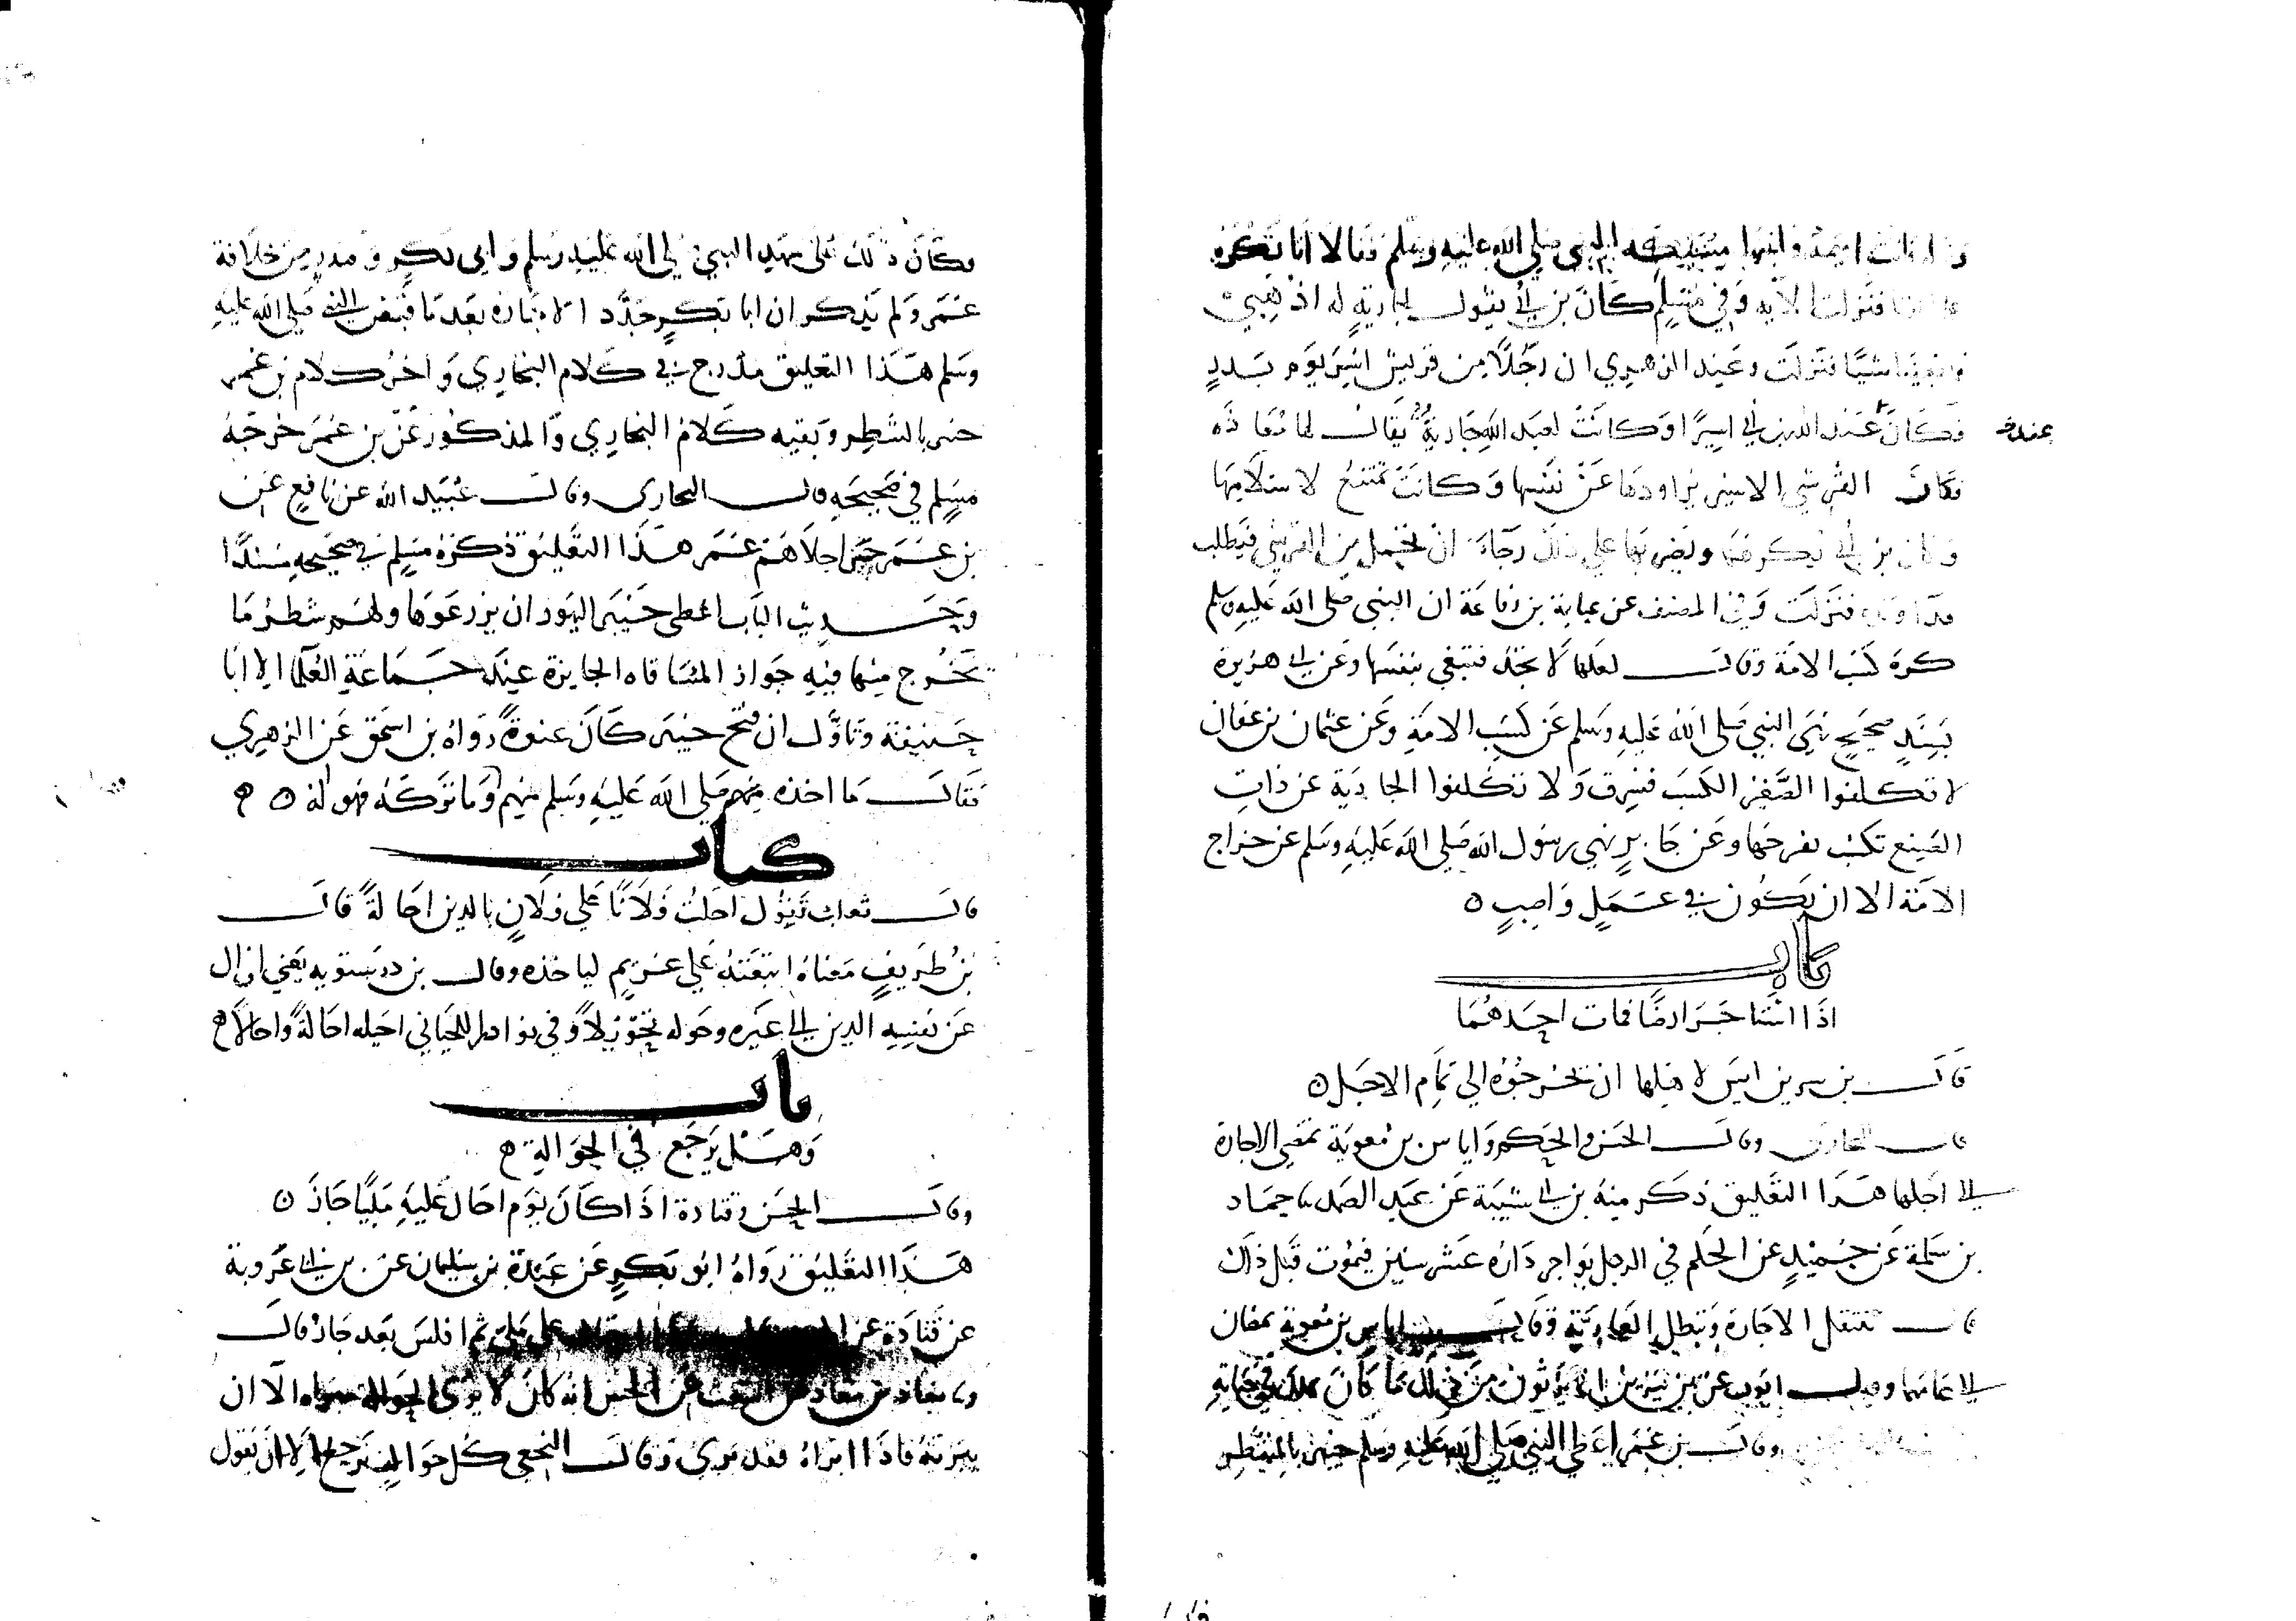 النبي صلى الله عليه وسلم وقالا انا نكره
فنزلت الاية وفي مسلم كان بن أبي يقول لجارية له اذهبي
فابغينا شيا فنزلت وعند الزهري ان رجلا من قريش اسر يوم بدر
عنده
فكان عند عبد الله بن أبي اسيرا وكانت لعبد الله جارية يقال لها معاذه
فكان القرشي الاسير يراودها عن نفسها وكانت تمتنع لاسلامها
وكان بن أبي يكرهها ويضربها على ذلك رجاء ان تحمل من القرشي فيطلب
فداء ولده فنزلت وفي المصنف عن عباية بن رفاعة ان النبي صلى الله عليه وسلم
كره كسب الامة وقال لعلها لا تجد فتبغي بنفسها وعن أبي هريرة
بسند صحيح نهى النبي صلى الله عليه وسلم عن كسب الامة وعن عثمان بن عفان
لا تكلفوا الصغير الكسب فيسرق ولا تكلفوا الجارية غير ذات
الصنع تكسب بفرجها وعن جابر نهى رسول الله صلى الله عليه وسلم عن خراج
الامة الا ان يكون في عمل واصب ه
باب
اذا استاجر ارضا فمات احدهما
قال بن سيرين ليس لاهلها ان تخرجوه الى تمام الاجل ه
قال البخاري وقال الحسن والحكم واياس بن معوية تمضي الاجارة
الى اجلها هذا التعليق ذكر منه بن أبي شيبة عن عبد الصمد ثنا حماد
بن سلمة عن حميد عن الحكم في الرجل يواجر داره عشر سنين فيموت قبل ذلك
قال تنتقل الاجارة وتبطل العارية وقال اياس بن معوية يمضان
الى غايتهما
وقال بن عمر اعطى النبي صلى الله عليه وسلم خيبر بالشطر
فكان ذلك على عهد النبي صلى الله عليه وسلم وابى بكر وصدر من خلافة
عمر ولم يذكر ان ابا بكر جدد الاجارة بعد ما قبض النبي صلى الله عليه
وسلم هذا التعليق مدرج في كلام البخاري واخر كلام بن عمر
خيبر بالشطر وبقيه كلام البخاري والمذكور عن بن عمر خرجه
مسلم في صحيحه قال البخاري وقال عبيد الله عن نافع عن
بن عمر حتى اجلاهم عمر هذا التعليق ذكره مسلم في صحيحه مسندا
وحديث الباب اعطى خيبر اليهود ان يزرعوها ولهم شطر ما
تخرج منها فيه جواز المساقاه الجايزة عند جماعة العلما الا ابا
حنيفة وتاول ان فتح خيبر كان عنوة رواه بن اسحق عن الزهري
فقال ما اخذه منهم صلى الله عليه وسلم منهم وما تركه فهو له ه
كتاب
قال ثعلب تقول احلت فلانا على فلان بالدين احالة قال
بن طريف معناه اتبعته على غريم لياخذه وقال بن درستويه يعني ازال
عن نفسه الدين الى غيره وحوله تحويلا وفي نوادر اللحياني احيله احالة واحالا
باب
وهل يرجع في الحوالة
وقال الحسن وقتادة اذا كان يوم احال عليه مليا جاز ه
هذا التعليق رواه ابو بكر عن عبدة بن سليمان عن بن أبي عروبة
عن قتادة عن الحسن على ملي ثم افلس بعد جاز قال
عن الحسن انه كان لا يرى الحوالة براه الا ان
يبريه فاذا ابراه فقد بري وقال النخعي كل حوالة ترجع الا ان يقول